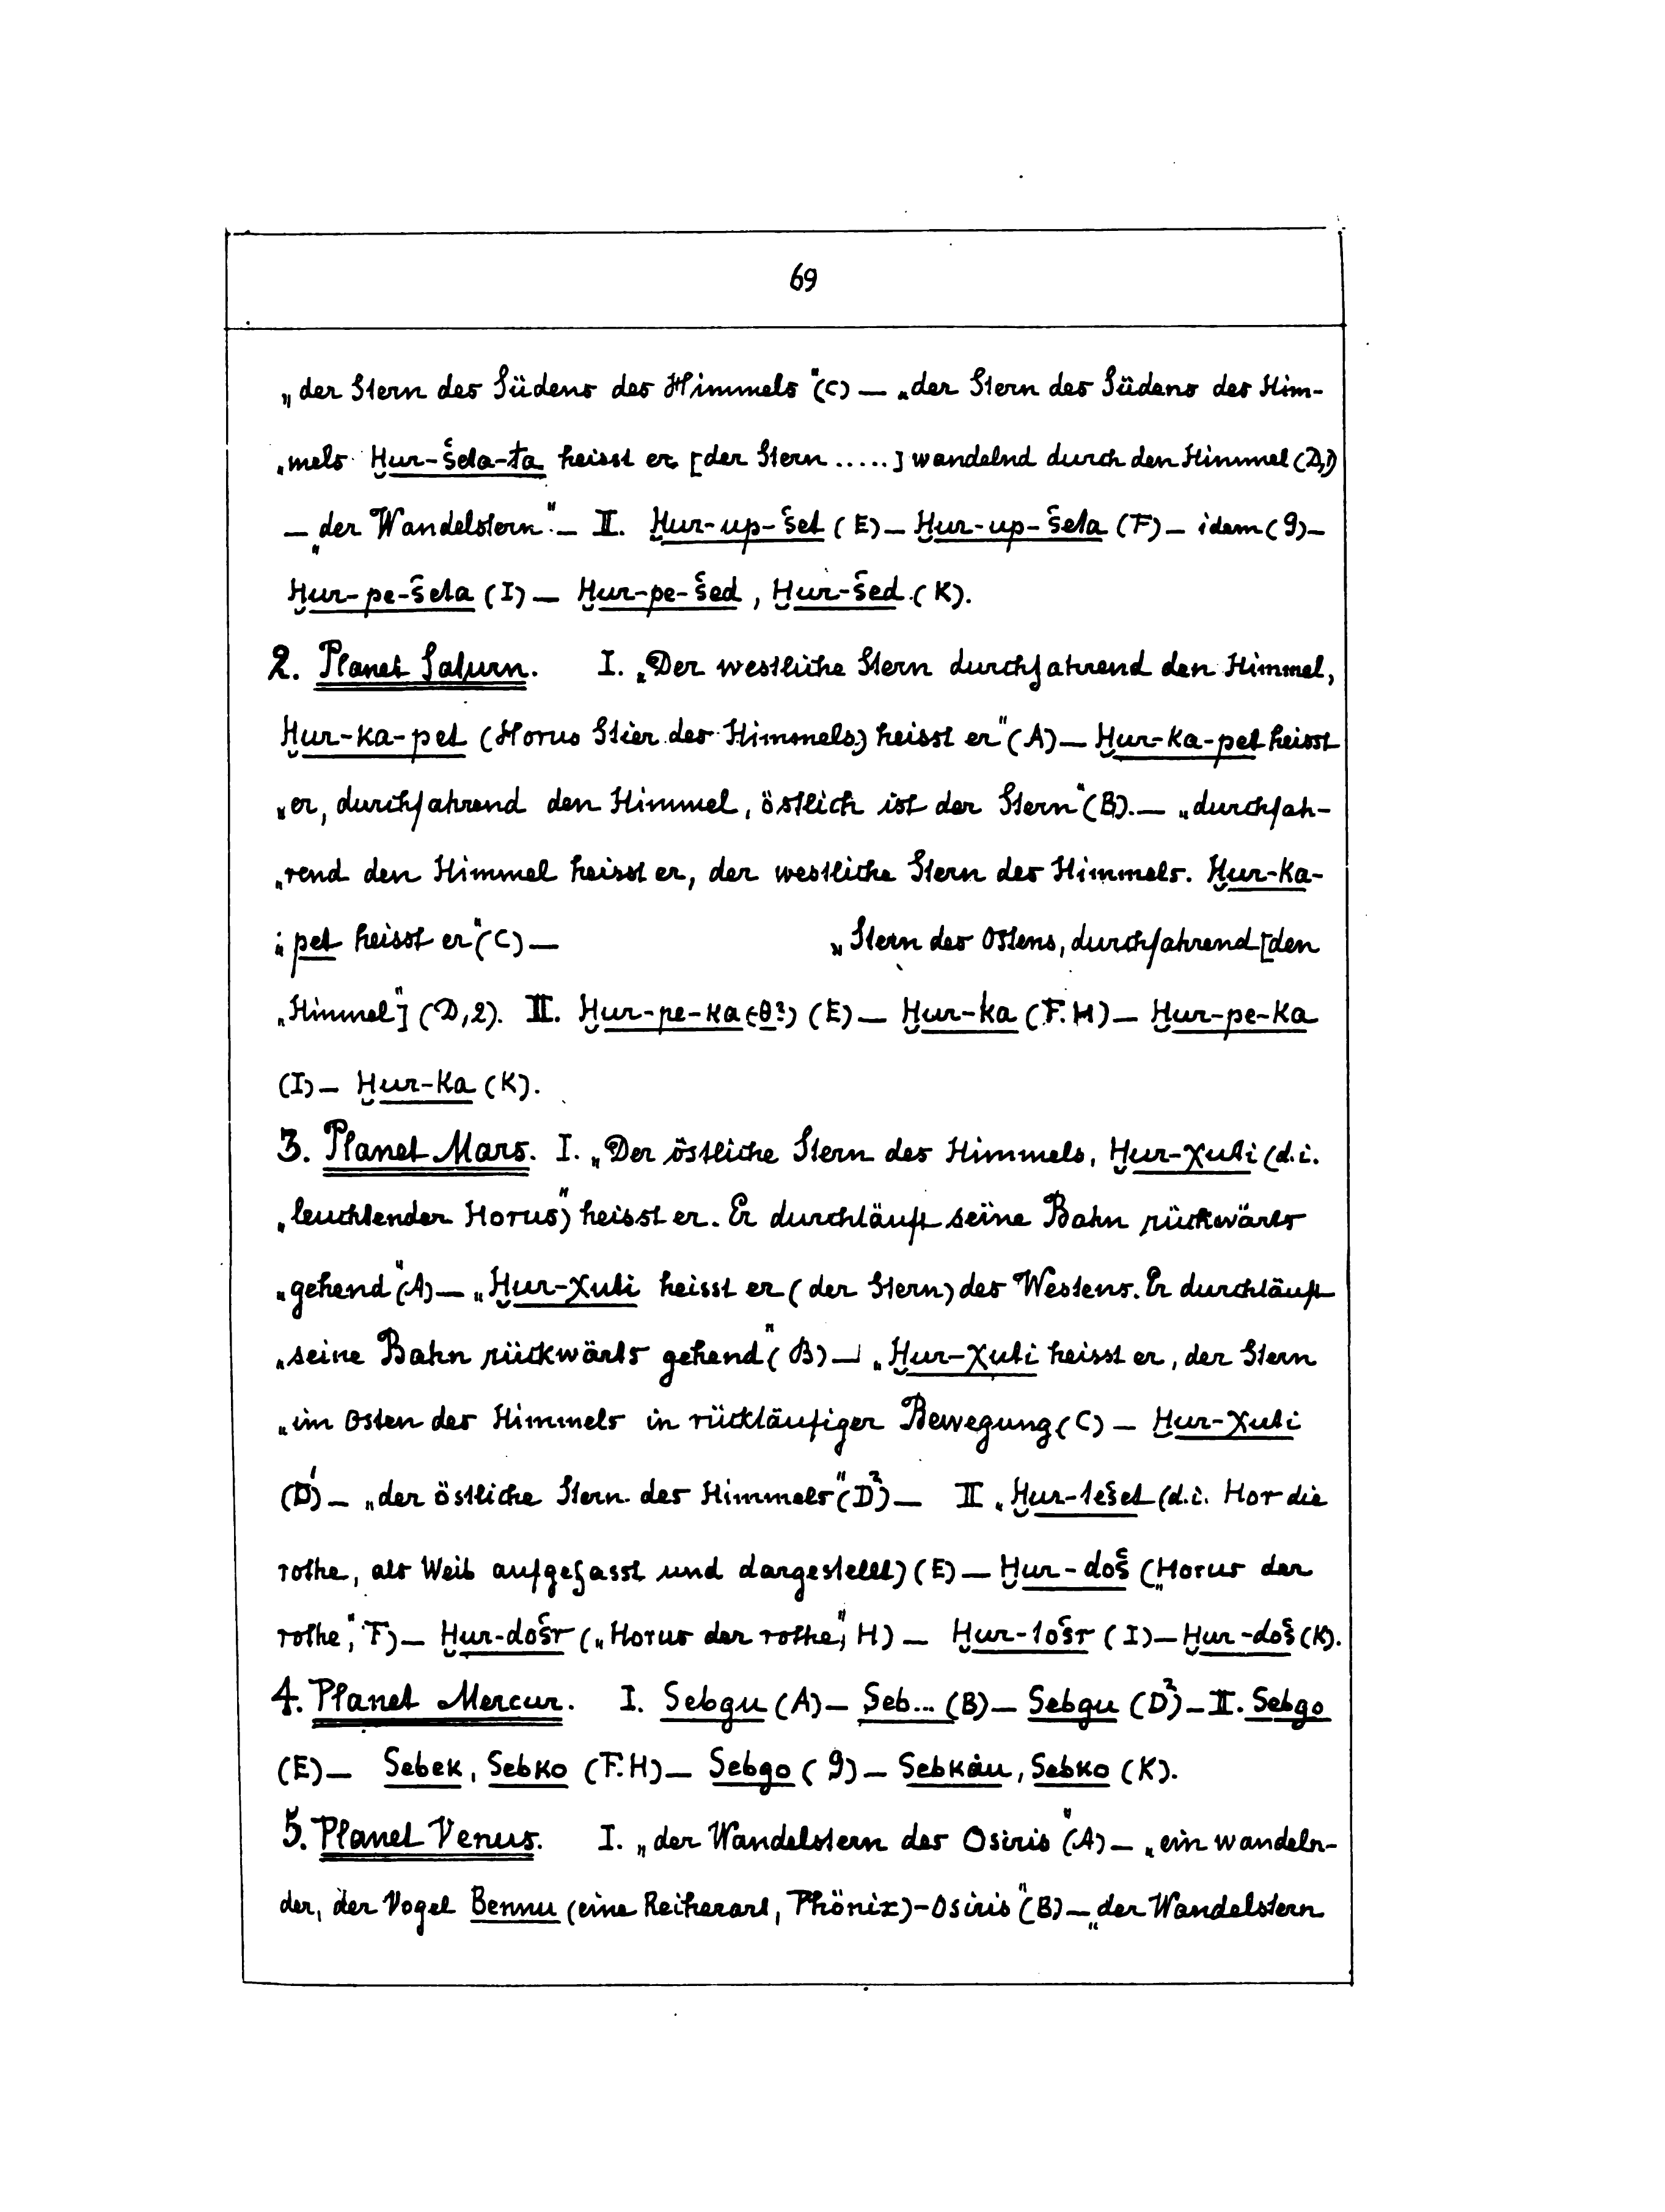 69
„der Stern des Südens des Himmels“ (C) — „der Stern des Südens des Him-
„mels Ḫur-šeta-ta heisst er [der Stern .....] wandelnd durch den Himmel (D,1)
— „der Wandelstern“ — II. Ḫur-up-šet (E) — Ḫur-up-šeta (F) — idem (G) —
Ḫur-pe-šeta (I) — Ḫur-pe-šed, Ḫur-šed (K).
2. Planet Saturn. I. „Der westliche Stern durchfahrend den Himmel,
Ḫur-ka-pet (Horus Stier des Himmels) heisst er“ (A) — Ḫur-ka-pet heisst
„er, durchfahrend den Himmel, östlich ist der Stern“ (B). — „durchfah-
„rend den Himmel heisst er, der westliche Stern des Himmels. Ḫur-ka-
„pet heisst er“ (C) — „Stern des Ostens, durchfahrend [den
„Himmel“] (D,2). II. Ḫur-pe-ka (-θ?) (E) — Ḫur-ka (F.H) — Ḫur-pe-ka
(I) — Ḫur-ka (K).
3. Planet Mars. I. „Der östliche Stern des Himmels, Ḫur-χuti (d.i.
„leuchtender Horus“) heisst er. Er durchläuft seine Bahn rückwärts
„gehend“ (A) — „Ḫur-χuti heisst er (der Stern) des Westens. Er durchläuft
„seine Bahn rückwärts gehend“ (B) — „Ḫur-χuti heisst er, der Stern
„im Osten des Himmels in rückläufiger Bewegung (C) — Ḫur-χuti
(D¹) — „der östliche Stern des Himmels“ (D²) — II „Ḫur-tešet (d.i. Hor die
rothe, als Weib aufgefasst und dargestellt) (E) — Ḫur-doš („Horus der
rothe“, F) — Ḫur-došr („Horus der rothe“, H) — Ḫur-tošr (I) — Ḫur-doš (K).
4. Planet Mercur. I. Sebgu (A) — Seb... (B) — Sebgu (D²) — II. Sebgo
(E) — Sebek, Sebko (F.H) — Sebgo (G) — Sebkàu, Sebko (K).
5. Planet Venus. I. „der Wandelstern des Osiris“ (A) — „ein wandeln-
der, der Vogel Bennu (eine Reiherart, Phönix)-Osiris“ (B) — „der Wandelstern